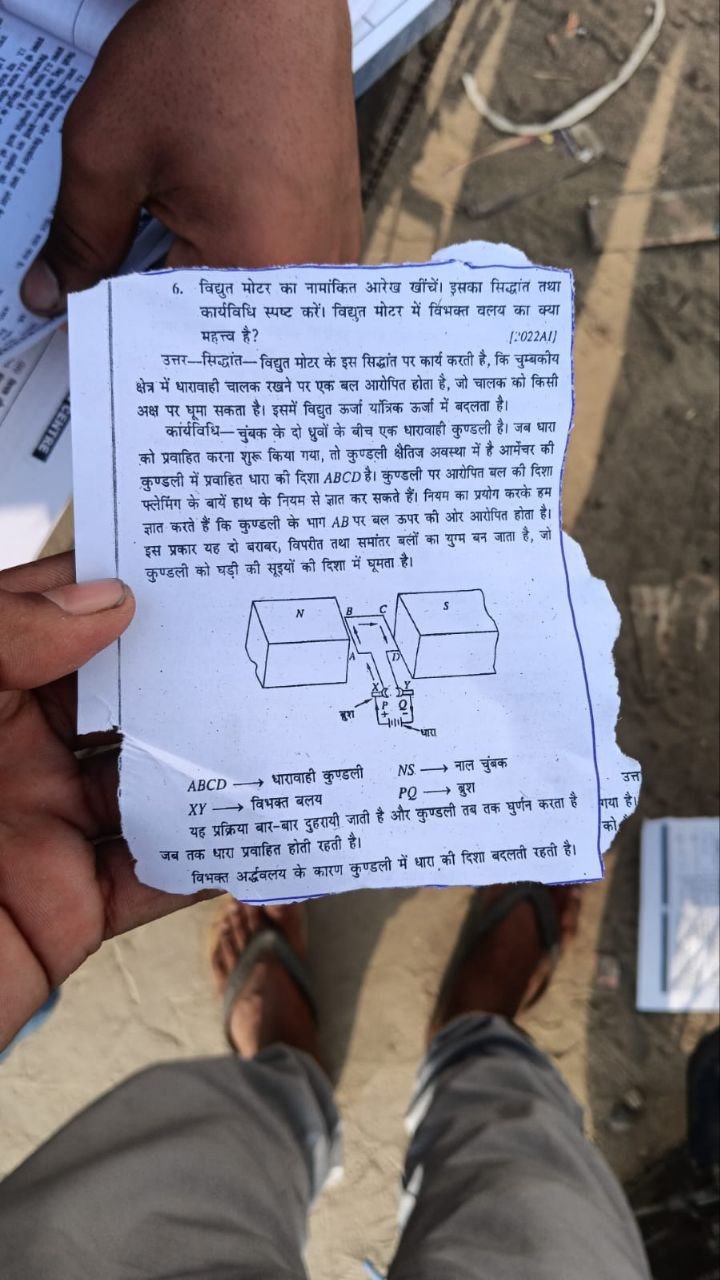 6. विद्युत मोटर का नामांकित आरेख खींचें। इसका सिद्धांत तथा
कार्यविधि स्पष्ट करें। विद्युत मोटर में विभक्त वलय का क्या
महत्त्व है?
[2022AI]
उत्तर—सिद्धांत—विद्युत मोटर के इस सिद्धांत पर कार्य करती है, कि चुम्बकीय
क्षेत्र में धारावाही चालक रखने पर एक बल आरोपित होता है, जो चालक को किसी
अक्ष पर घूमा सकता है। इसमें विद्युत ऊर्जा यांत्रिक ऊर्जा में बदलता है।
कार्यविधि—चुंबक के दो ध्रुवों के बीच एक धारावाही कुण्डली है। जब धारा
को प्रवाहित करना शुरू किया गया, तो कुण्डली क्षैतिज अवस्था में है आर्मेचर की
कुण्डली में प्रवाहित धारा की दिशा ABCD है। कुण्डली पर आरोपित बल की दिशा
फ्लेमिंग के बायें हाथ के नियम से ज्ञात कर सकते हैं। नियम का प्रयोग करके हम
ज्ञात करते हैं कि कुण्डली के भाग AB पर बल ऊपर की ओर आरोपित होता है।
इस प्रकार यह दो बराबर, विपरीत तथा समांतर बलों का युग्म बन जाता है, जो
कुण्डली को घड़ी की सूइयों की दिशा में घूमता है।
N B C S
A D
X Y
P Q
+ −
ब्रुश
धारा
ABCD → धारावाही कुण्डली NS → नाल चुंबक
XY → विभक्त वलय PQ → ब्रुश
यह प्रक्रिया बार-बार दुहरायी जाती है और कुण्डली तब तक घुर्णन करता है
जब तक धारा प्रवाहित होती रहती है।
विभक्त अर्द्धवलय के कारण कुण्डली में धारा की दिशा बदलती रहती है।
उत्त
गया है।
को
CENTRE